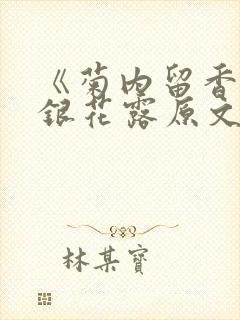 《菊内留香
银花露原文
林某寶